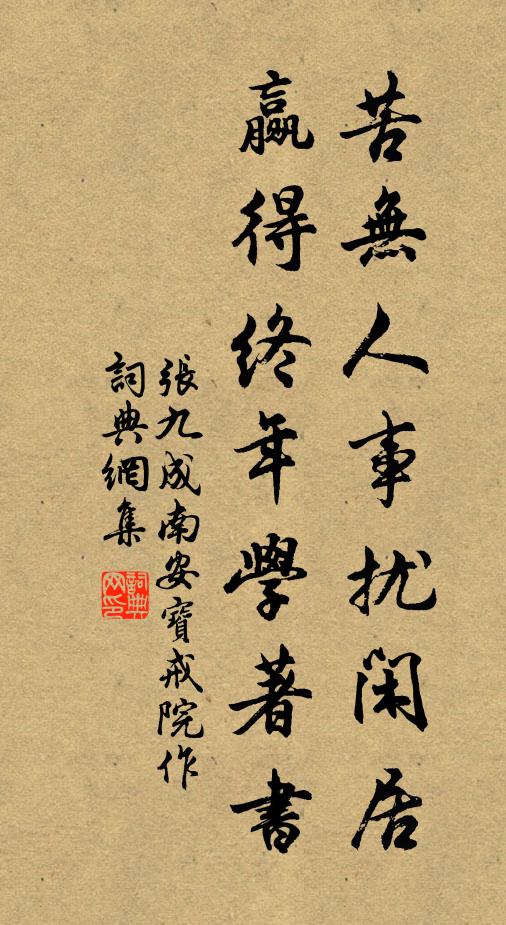 苦無人事扰閑居
贏得終年學著書
張九成南安寶戒院作
詞典網集
詞典網印